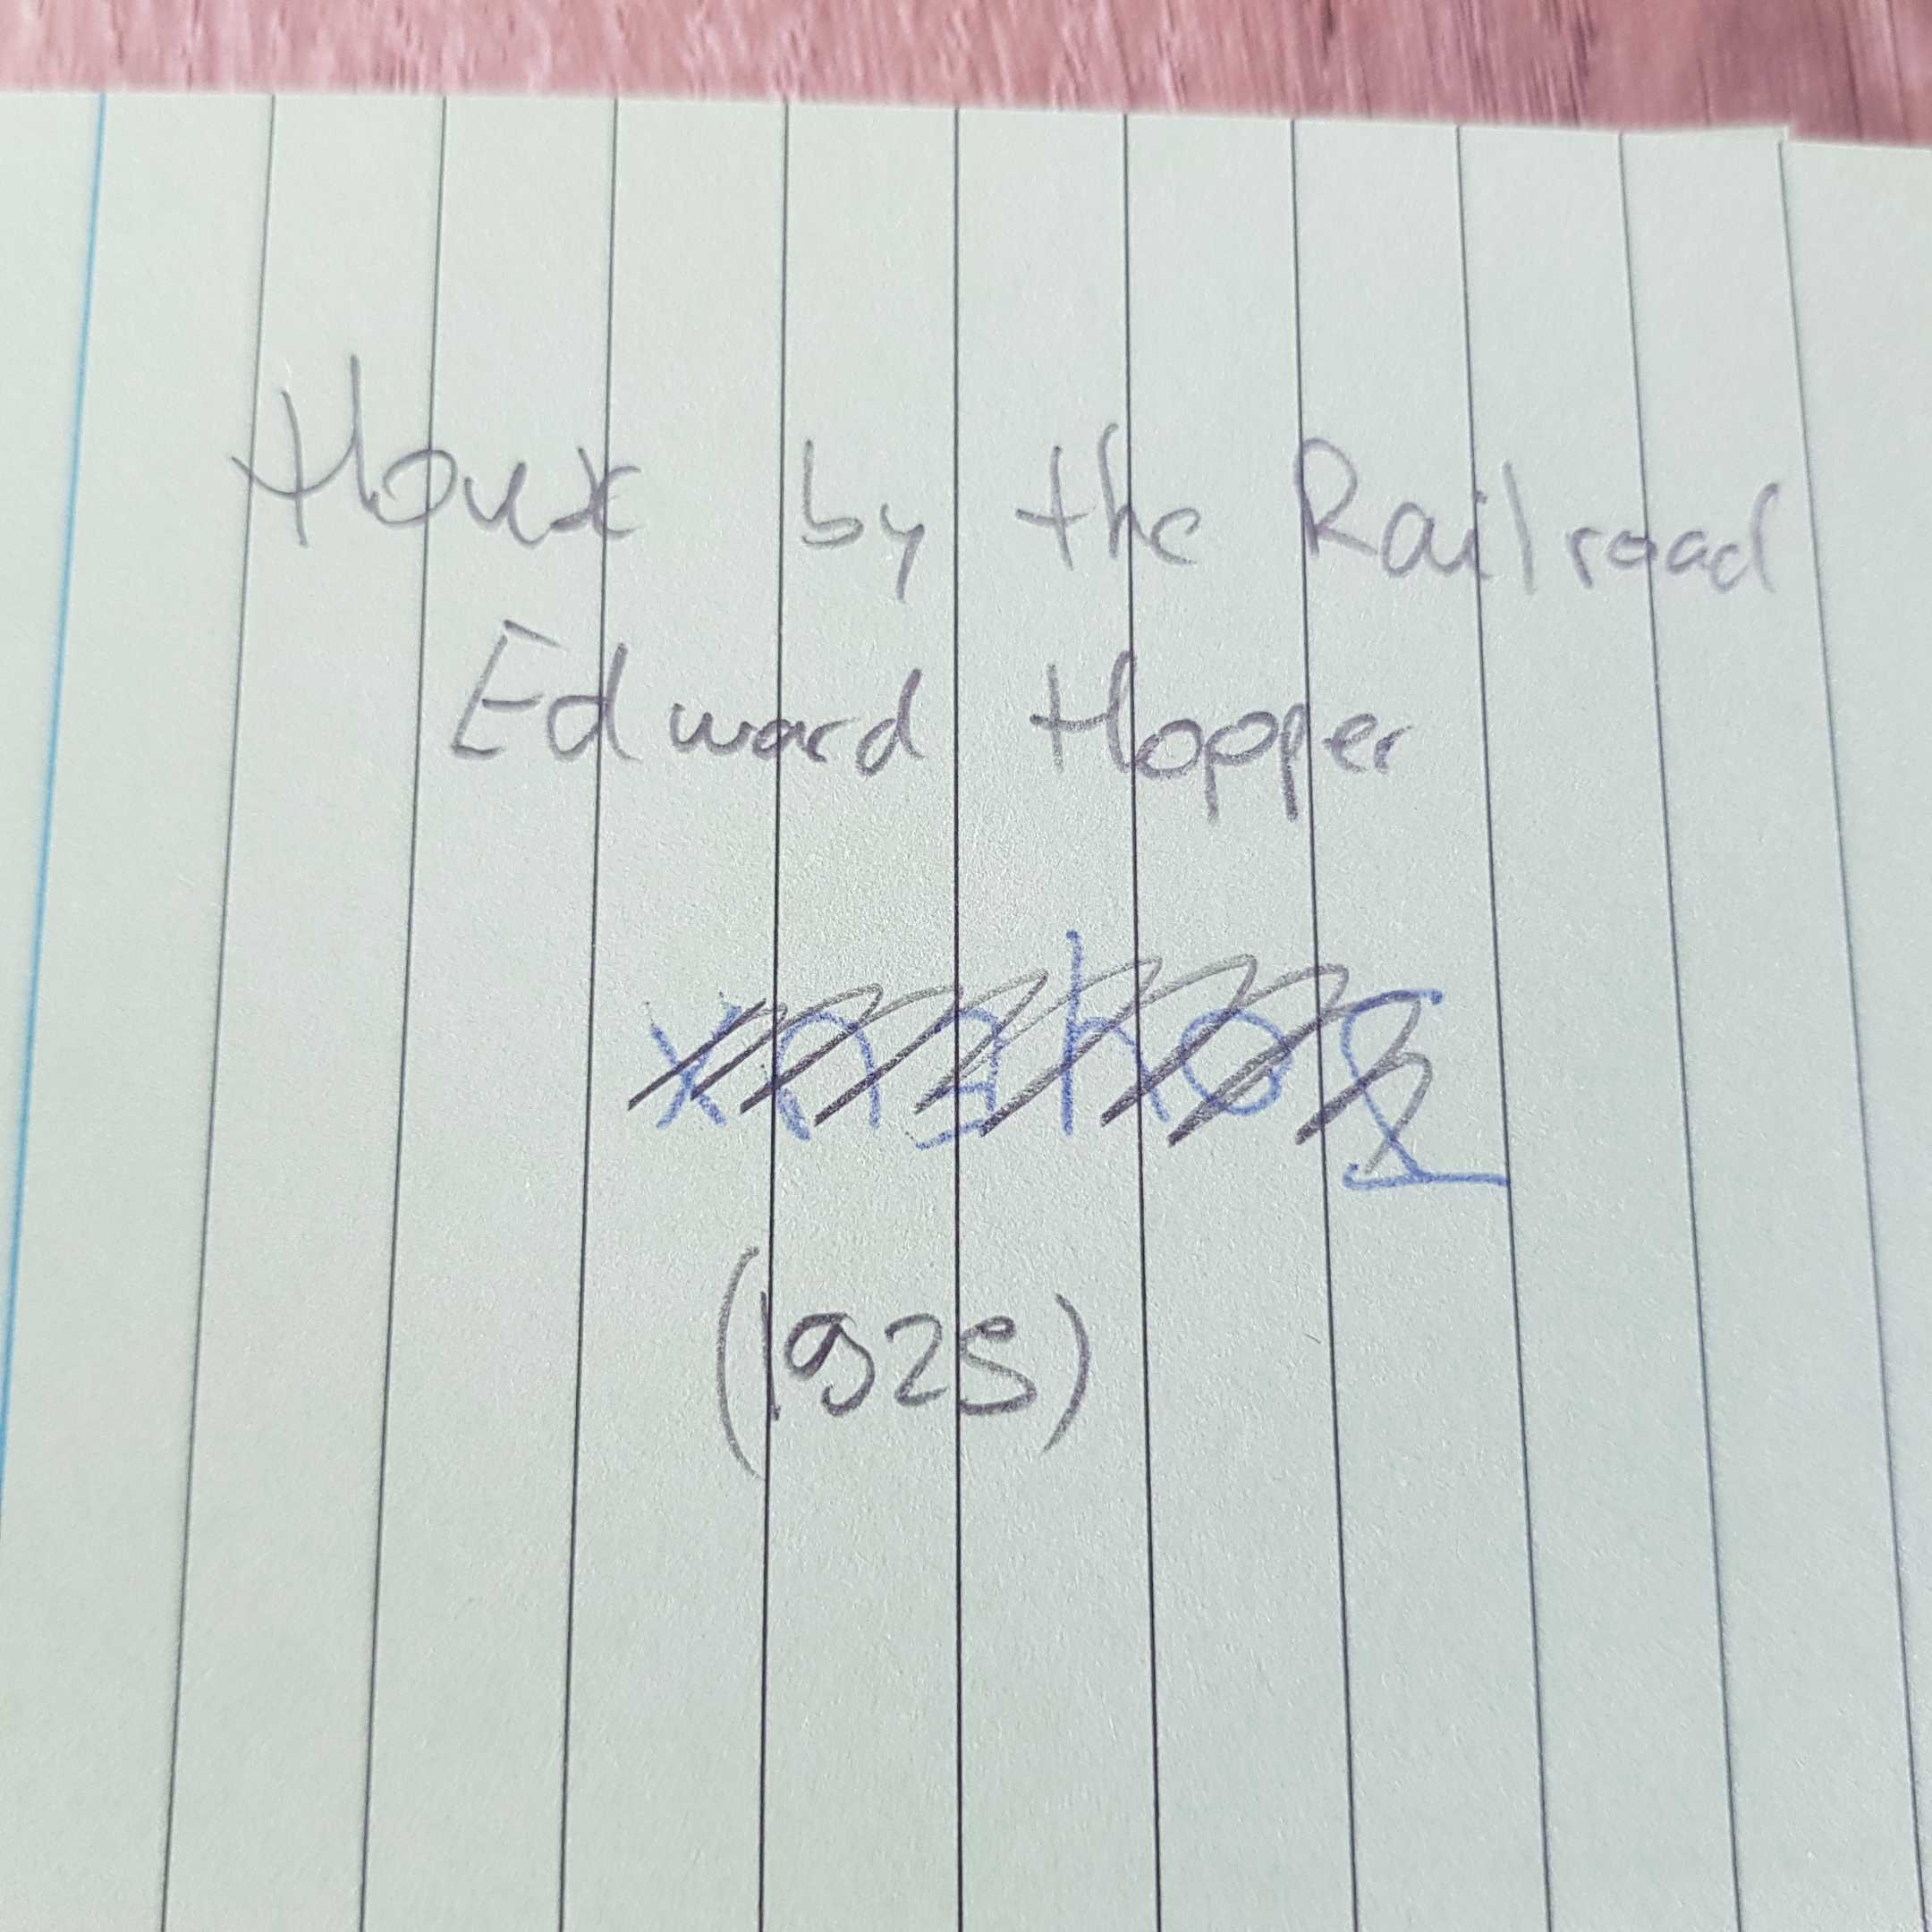 House by the Railroad
Edward Hopper
(1925)